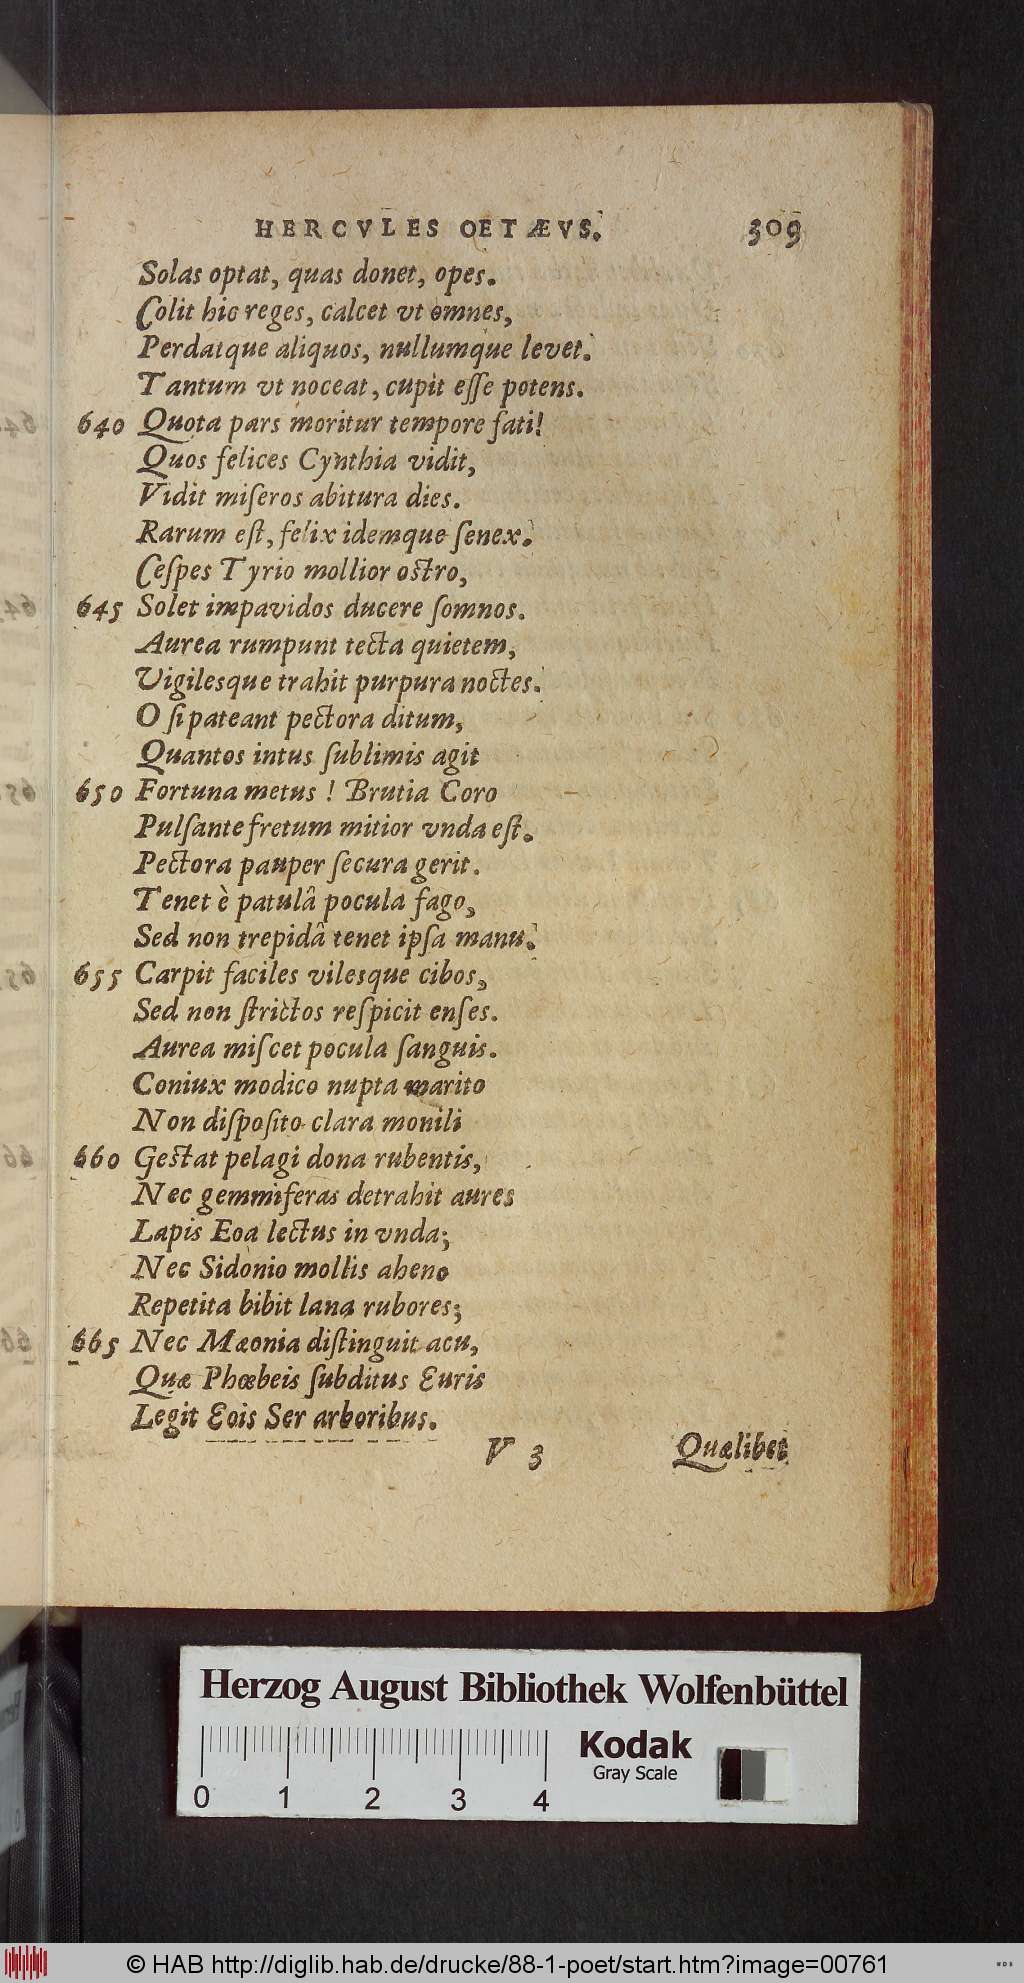 HERCVLES OETÆVS. 309
Solas optat, quas donet, opes.
Colit hic reges, calcet vt omnes,
Perdatque aliquos, nullumque levet.
Tantum vt noceat, cupit eſſe potens.
640 Quota pars moritur tempore fati!
Quos felices Cynthia vidit,
Vidit miſeros abitura dies.
Rarum eſt, felix idemque ſenex.
Ceſpes Tyrio mollior oſtro,
645 Solet impavidos ducere ſomnos.
Aurea rumpunt tecta quietem,
Vigilesque trahit purpura noctes.
O ſi pateant pectora ditum,
Quantos intus ſublimis agit
650 Fortuna metus! Brutia Coro
Pulſante fretum mitior vnda eſt.
Pectora pauper ſecura gerit.
Tenet è patulâ pocula fago,
Sed non trepidâ tenet ipſa manu.
655 Carpit faciles vilesque cibos,
Sed non ſtrictos reſpicit enſes.
Aurea miſcet pocula ſanguis.
Coniux modico nupta marito
Non diſpoſito clara monili
660 Geſtat pelagi dona rubentis,
Nec gemmiferas detrahit aures
Lapis Eoa lectus in vnda;
Nec Sidonio mollis aheno
Repetita bibit lana rubores;
665 Nec Mæonia diſtinguit acu,
Quæ Phœbeis ſubditus Euris
Legit Eois Ser arboribus.
V 3 Quælibet
Herzog August Bibliothek Wolfenbüttel
Kodak
Gray Scale
0 1 2 3 4
© HAB http://diglib.hab.de/drucke/88-1-poet/start.htm?image=00761